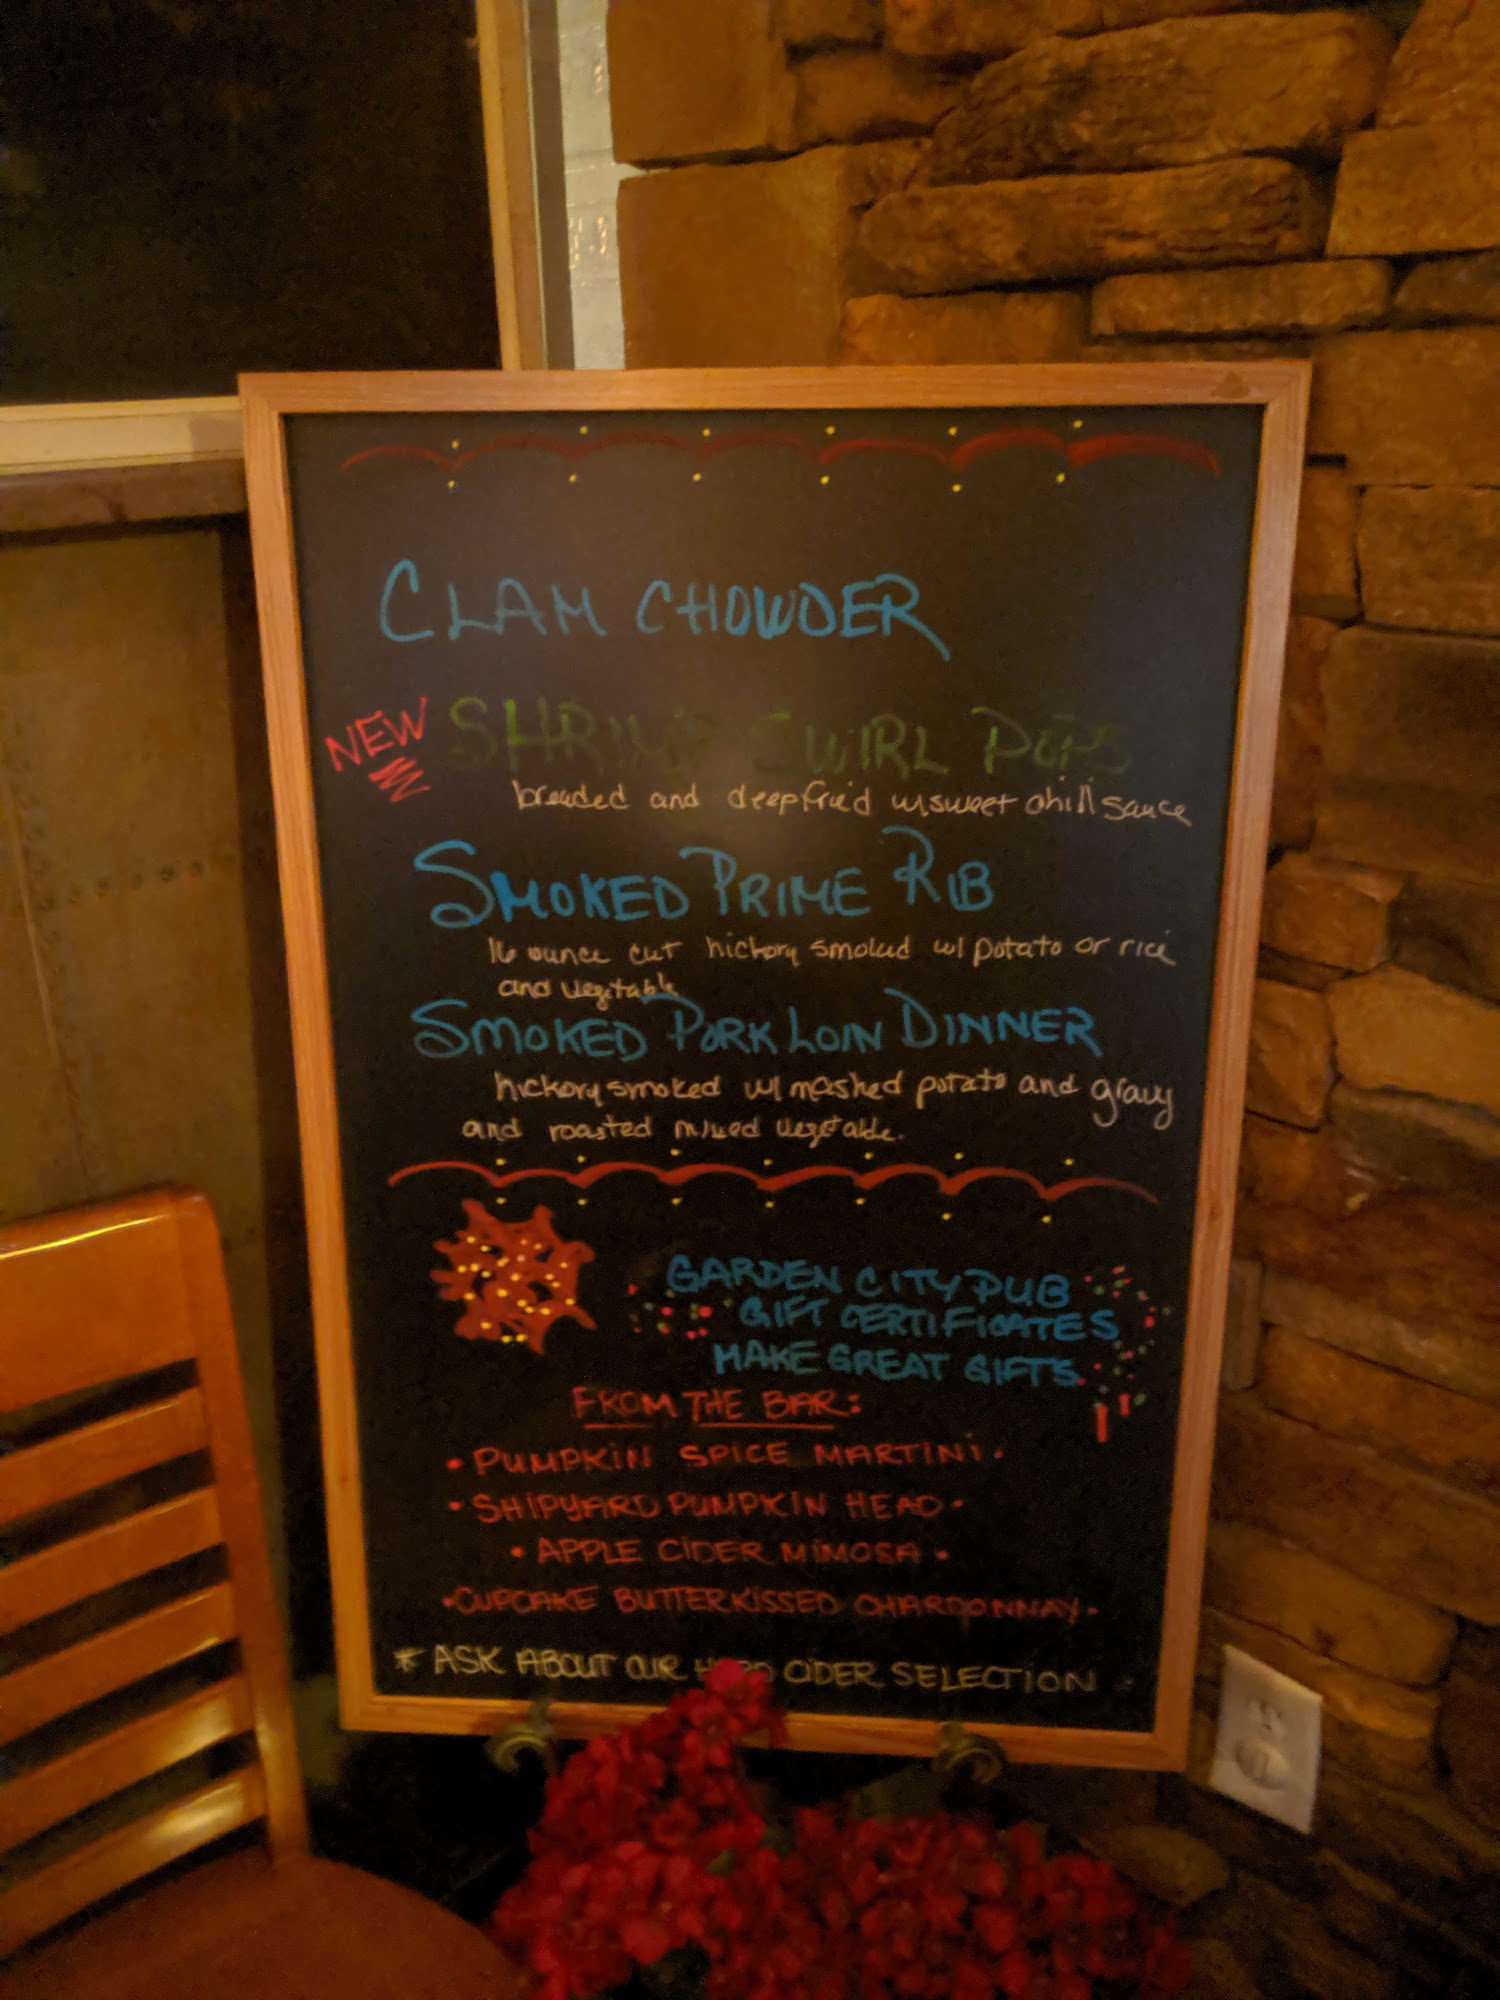 CLAM CHOWDER
NEW SHRIMP SWIRL POPS
breaded and deepfried w/sweet chili sauce
SMOKED PRIME RIB
16 ounce cut hickory smoked w/ potato or rice
and vegetable
SMOKED PORK LOIN DINNER
hickory smoked w/ mashed potato and gravy
and roasted mixed vegetable.
GARDEN CITY PUB
GIFT CERTIFICATES
MAKE GREAT GIFTS.
FROM THE BAR:
• PUMPKIN SPICE MARTINI •
• SHIPYARD PUMPKIN HEAD •
• APPLE CIDER MIMOSA •
• CUPCAKE BUTTERKISSED CHARDONNAY •
* ASK ABOUT OUR HARD CIDER SELECTION